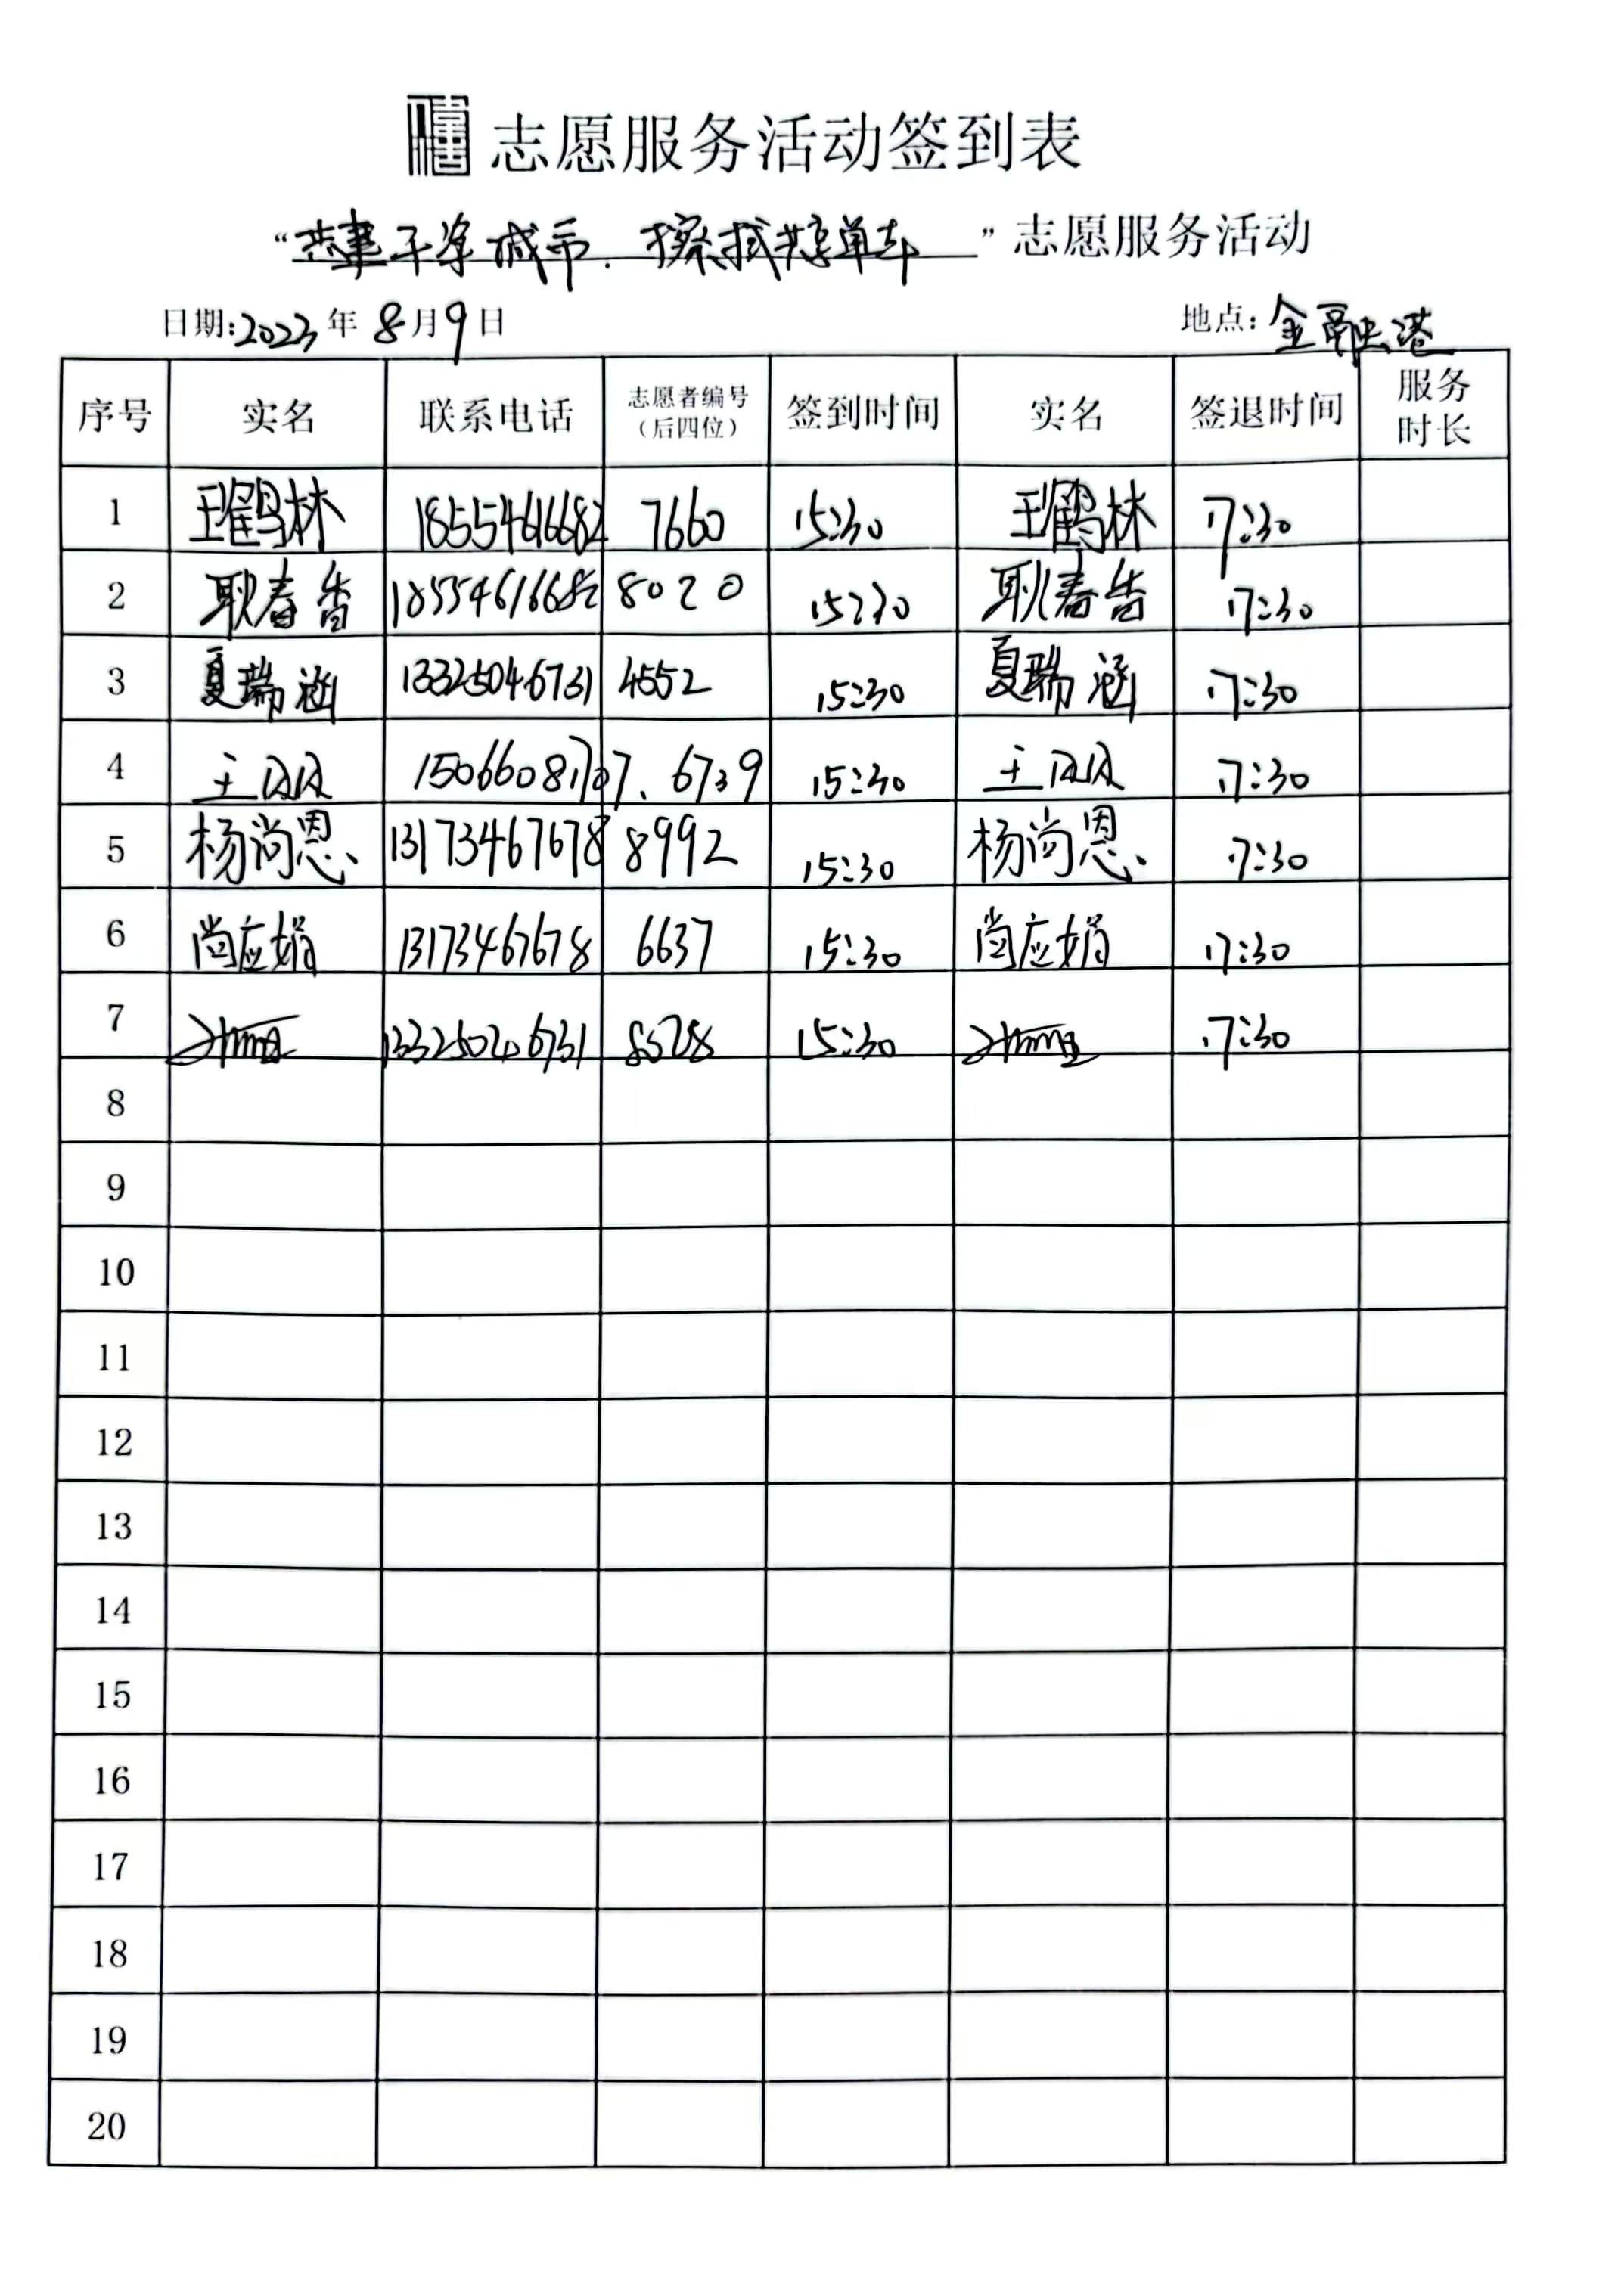 志愿服务活动签到表
“共建干净城市.擦拭共享单车”志愿服务活动
日期:2023年8月9日 地点:金融港
序号 实名 联系电话 志愿者编号(后四位) 签到时间 实名 签退时间 服务时长
1 王鹤林 18554616682 7660 15:30 王鹤林 17:30
2 耿春香 18554616682 8020 15:30 耿春香 17:30
3 夏瑞涵 13325046731 4552 15:30 夏瑞涵 17:30
4 王 15066081707. 6739 15:30 王 17:30
5 杨尚恩、 13173467678 8992 15:30 杨尚恩、 17:30
6 尚应娟 13173467678 6637 15:30 尚应娟 17:30
7 13325046731 15:30 17:30
8
9
10
11
12
13
14
15
16
17
18
19
20